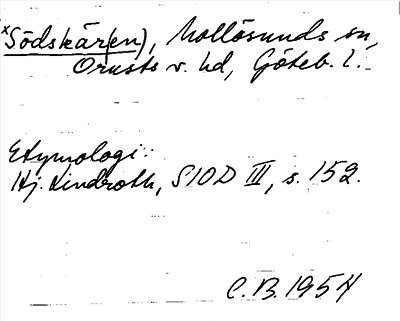 ×Södskär(en), Mollösunds sn,
Orusts v. hd, Göteb. l.
Etymologi:
Hj. Lindroth, SIOD III, s. 152.
C.B. 1954